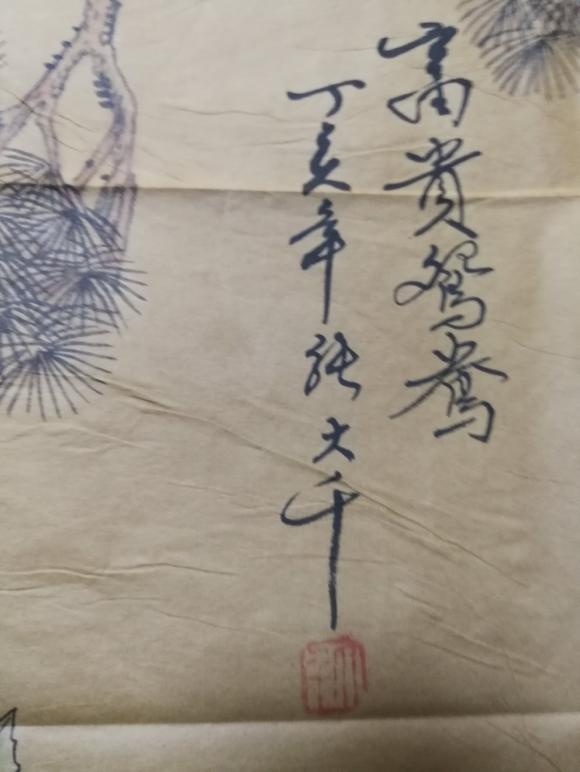 富貴鴛鴦
丁亥年張大千